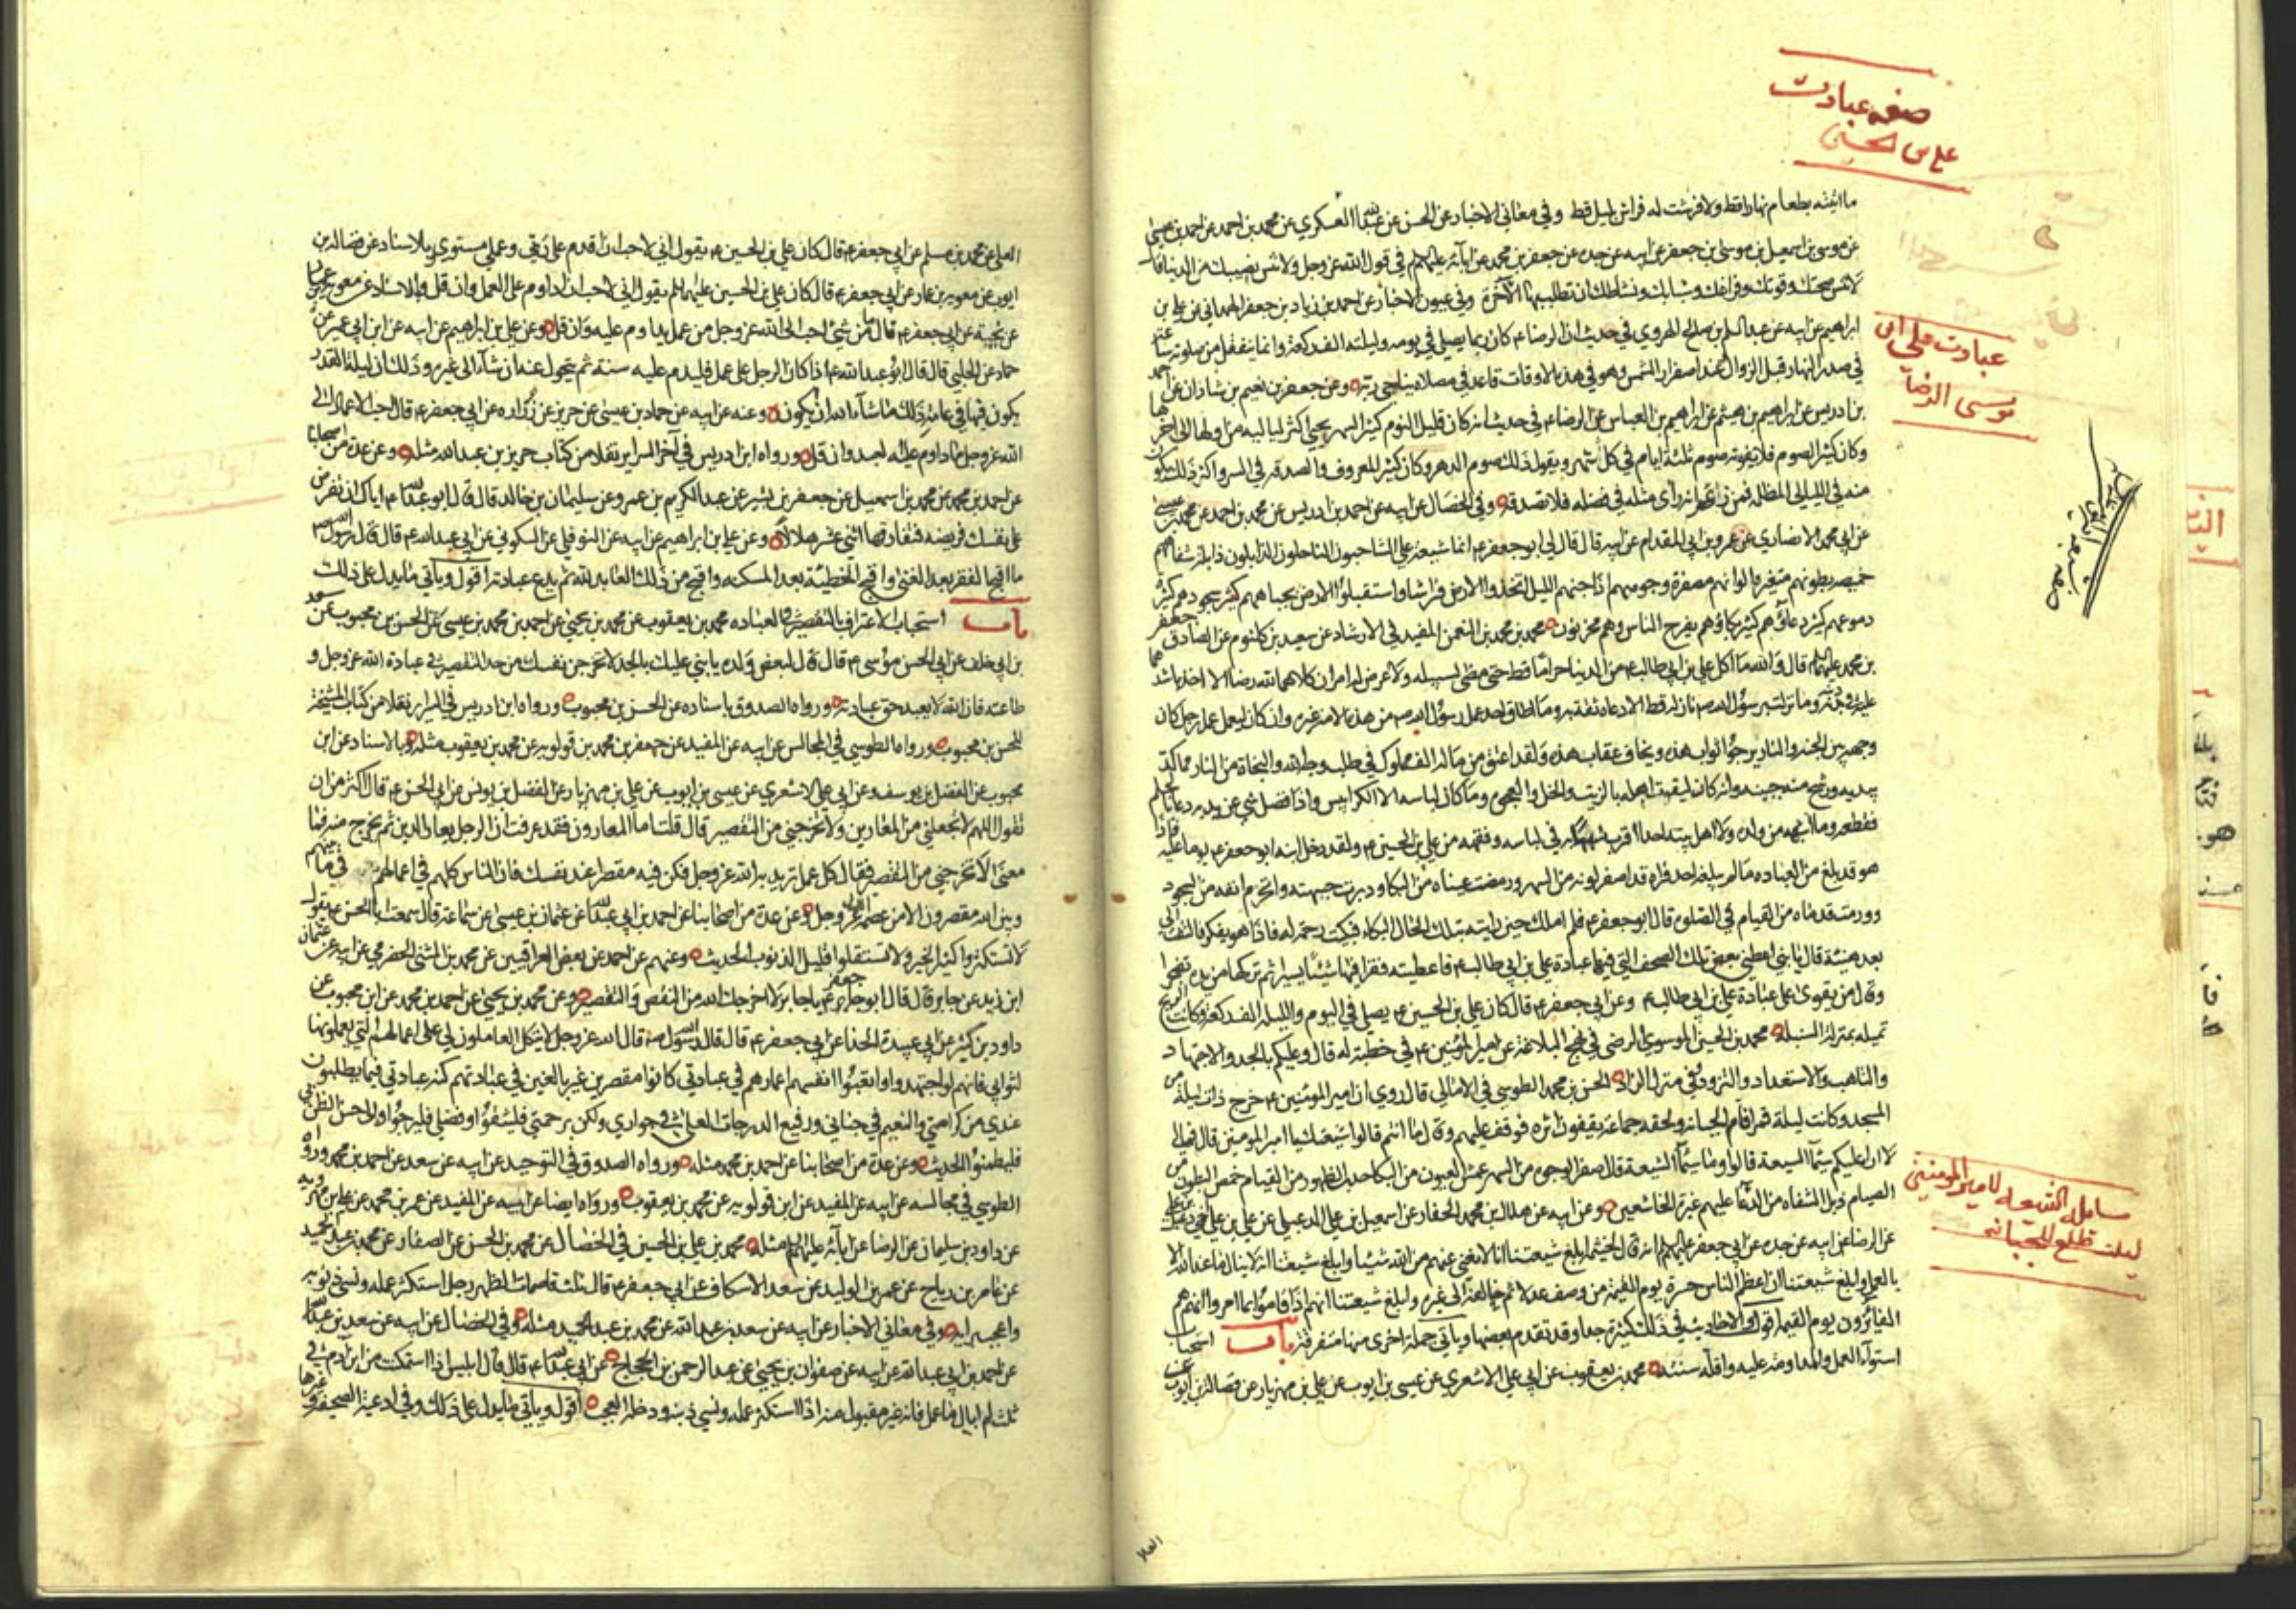 صفه عبادت
علی بن الحسین
ما اتيته بطعام نهارا قط ولا فرشت له فراش بليل قط وفي معاني الاخبار عن الحسن بن عبدالله العسكري عن محمد بن احمد عن احمد بن عيسى
عن موسى بن اسمعيل بن موسى بن جعفر عن ابيه عن جده عن جعفر بن محمد عن آبائه عليهم في قول الله عز وجل ولا تنس نصيبك من الدنيا قال
لا تنس صحتك وقوتك وفراغك وشبابك ونشاطك ان تطلب بها الآخرة وفي عيون الاخبار عن احمد بن زياد بن جعفر الهمداني عن علي بن
ابراهيم عن ابيه عن عبد السلم بن صالح الهروي في حديث ان الرضا ع كان ربما يصلي في يومه وليلته الف ركعة وانما ينفتل من صلوته ساعة
في صدر النهار قبل الزوال وعند اصفرار الشمس وهو في هذه الاوقات قاعد في مصلاه يناجي ربه وعن جعفر بن نعيم بن شاذان عن احمد
بن ادريس عن ابراهيم بن هيثم عن ابراهيم بن العباس عن الرضا ع في حديث انه كان قليل النوم كثير السهر يحيي اكثر لياليه من اولها الى آخرها
وكان كثير الصوم فلا يفوته صوم ثلثة ايام في كل شهر ويقول ذلك صوم الدهر وكان كثير المعروف والصدقة في السر واكثر ذلك يكون
منه في الليالي المظلمة فمن زعم انه رأى مثله في فضله فلا تصدقه وفي الخصال عن ابيه عن احمد بن ادريس عن محمد بن احمد عن محمد بن عيسى
عن ابي محمد الانصاري عن عمرو بن ابي المقدام عن ابيه قال قال لي ابو جعفر ع انما شيعة علي الشاحبون الناحلون الذابلون ذابلة شفاههم
خميصة بطونهم متغيرة الوانهم مصفرة وجوههم اذا جنهم الليل اتخذوا الارض فراشا واستقبلوا الارض بجباههم كثير سجودهم كثيرة
دموعهم كثير دعاؤهم كثير بكاؤهم يفرح الناس وهم محزنون محمد بن محمد بن النعمن المفيد في الارشاد عن سعيد بن كلثوم عن الصادق جعفر
بن محمد عليهما قال والله ما اكل علي بن ابي طالب ع من الدنيا حراما قط حتى مضى لسبيله ولا عرض له امران كلاهما لله رضا الا اخذ باشدهما
عليه في دينه وما نزلت برسول الله ص نازلة قط الا دعاه ثقة به وما اطاق احد عمل رسول الله ص من هذه الامة غيره وان كان ليعمل عمل رجل كان
وجهه بين الجنة والنار يرجو ثواب هذه ويخاف عقاب هذه ولقد اعتق من ماله الف مملوك في طلب وجه الله والنجاة من النار مما كد
بيديه ورشح منه جبينه وانه كان ليقوت اهله بالزيت والخل والعجوة وما كان لباسه الا الكرابيس واذا فضل شي عن يديه دعا بالجلم
فقطعه وما اشبهه من ولده ولا اهل بيته احد اقرب شبها به في لباسه وفقهه من علي بن الحسين ع ولقد دخل ابنه ابو جعفر ع يوما عليه فاذا
هو قد بلغ من العباده ما لم يبلغه احد فراه قد اصفر لونه من السهر ورمضت عيناه من البكاء ودبرت جبهته وانخرم انفه من السجود
وورمت قدماه من القيام في الصلوة قال ابو جعفر ع فلم املك حين رايته بتلك الحال البكاء فبكيت رحمة له فاذا هو يفكر فالتفت الي
بعد هنيئة قال يا بني اعطني بعض تلك الصحف التي فيها عبادة علي بن ابي طالب ع فاعطيته فقرا فيها شيئا يسيرا ثم تركها من يده تضجرا
وقال من يقوى على عبادة علي بن ابي طالب ع وعن ابي جعفر ع قال كان علي بن الحسين ع يصلي في اليوم والليلة الف ركعة وكانت الريح
تميله بمنزلة السنبلة محمد بن الحسين الموسوي الرضي في نهج البلاغة عن امير المؤمنين ع في خطبة له قال وعليكم بالجد والاجتهاد
والتاهب والاستعداد والتزود في منزل الزاد الحسن بن محمد الطوسي في الامالي قال روي ان امير المؤمنين ع خرج ذات ليلة من
المسجد وكانت ليلة قمراء فام الجبانة ولحقه جماعة يقفون اثره فوقف عليهم وقال من انتم قالوا شيعتك يا امير المؤمنين قال فمالي
لا ارى عليكم سيماء الشيعة قالوا وما سيماء الشيعة قال صفر الوجوه من السهر عمش العيون من البكاء حدب الظهور من القيام خمص البطون من
الصيام ذبل الشفاه من الدعاء عليهم غبرة الخاشعين وعن ابيه عن هلال بن محمد الحفار عن اسمعيل بن علي الدعبلي عن علي بن علي اخي دعبل
عن الرضا عن ابيه عن جده عن ابي جعفر عليهم انه قال لخيثمة ابلغ شيعتنا انا لا نغني عنهم من الله شيئا وابلغ شيعتنا انه لا ينال ما عند الله الا
بالعمل وابلغ شيعتنا ان اعظم الناس حسرة يوم القيمة من وصف عدلا ثم خالفه الى غيره وابلغ شيعتنا انهم اذا قاموا بما امروا انهم هم
الفائزون يوم القيمة اقول والاحاديث في ذلك كثيرة جدا وقد تقدم بعضها ويأتي جملة اخرى منها متفرقة باب استحباب
استواء العمل والمداومة عليه واقله سنة محمد بن يعقوب عن ابي علي الاشعري عن عيسى بن ايوب عن علي بن مهزيار عن فضالة بن ايوب عن
عبادت علی ابن
موسی الرضا
سامله الشیعه لامیر المومنین
لیلت تطلع للجبانه
العلا
العلا عن محمد بن مسلم عن ابي جعفر ع قال كان علي بن الحسين ع يقول اني لاحب ان اقدم على ربي وعملي مستوي وبالاسناد عن فضالة بن
ايوب عن معوية بن عمار عن ابي جعفر ع قال كان علي بن الحسين عليهما يقول اني لاحب ان اداوم على العمل وان قل وبالاسناد عن معوية بن عمار
عن نجبة عن ابي جعفر ع قال ما من شئ احب الى الله عز وجل من عمل يداوم عليه وان قل وعن علي بن ابراهيم عن ابيه عن ابن ابي عمير عن
حماد عن الحلبي قال قال ابو عبد الله ع اذا كان الرجل على عمل فليدم عليه سنة ثم يتحول عنه ان شاء الى غيره وذلك ان ليلة القدر
يكون فيها في عامه ذلك ما شاء الله ان يكون وعنه عن ابيه عن حماد بن عيسى عن حريز عن زراره عن ابي جعفر ع قال احب الاعمال الى
الله عز وجل ما داوم عليه العبد وان قل ورواه ابن ادريس في آخر السراير نقلا من كتاب حريز بن عبد الله مثله وعن عدة من اصحابنا
عن احمد بن محمد عن محمد بن اسمعيل عن جعفر بن بشير عن عبد الكريم بن عمرو عن سليمان بن خالد قال قال ابو عبدالله ع اياك ان تفرض
على نفسك فريضه فتفارقها اثني عشر هلالا وعن علي بن ابراهيم عن ابيه عن النوفلي عن السكوني عن ابي عبد الله ع قال قال رسول الله ص
ما اقبح الفقر بعد الغنى واقبح الخطيئة بعد المسكنه واقبح من ذلك العابد لله ثم يدع عبادته اقول ويأتي ما يدل على ذلك
باب استحباب الاعتراف بالتقصير في العباده محمد بن يعقوب عن محمد بن يحيى عن احمد بن محمد بن عيسى عن الحسن بن محبوب عن سعد
بن ابي خلف عن ابي الحسن موسى ع قال قال لبعض ولده يا بني عليك بالجد لا تخرجن نفسك من حد التقصير في عبادة الله عز وجل و
طاعته فان الله لا يعبد حق عبادته ورواه الصدوق باسناده عن الحسن بن محبوب ورواه ابن ادريس في السراير نقلا من كتاب المشيخة
للحسن بن محبوب ورواه الطوسي في المجالس عن ابيه عن المفيد عن جعفر بن محمد بن قولويه عن محمد بن يعقوب مثله وبالاسناد عن ابن
محبوب عن الفضل بن يوسف وعن ابي علي الاشعري عن عيسى بن ايوب عن علي بن مهزيار عن الفضل بن يونس عن ابي الحسن ع قال اكثر من ان
تقول اللهم لا تجعلني من المعارين ولا تخرجني من التقصير قال قلت اما المعارون فقد عرفت ان الرجل يعار الدين ثم يخرج منه فما
معنى لا تخرجني من التقصير فقال كل عمل تريد به الله عز وجل فكن فيه مقصرا عند نفسك فان الناس كلهم في اعمالهم في ما بينهم
وبين الله مقصرون الا من عصمه الله عز وجل وعن عدة من اصحابنا عن احمد بن ابي عبدالله عن عثمان بن عيسى عن سماعة قال سمعت ابا الحسن ع يقول
لا تستكثروا كثير الخير ولا تستقلوا قليل الذنوب الحديث وعنهم عن احمد عن بعض العراقيين عن محمد بن المثنى الحضرمي عن ابيه عن عثمان
ابن زيد عن جابر قال قال ابو جعفر ع يا جابر لا اخرجك الله من النقص والتقصير وعن محمد بن يحيى عن احمد بن محمد عن ابن محبوب عن
داود بن كثير عن ابي عبيدة الحذاء عن ابي جعفر ع قال قال رسول الله ص قال الله عز وجل لا يتكل العاملون لي على اعمالهم التي يعملونها
لثوابي فانهم لو اجتهدوا واتعبوا انفسهم اعمارهم في عبادتي كانوا مقصرين غير بالغين في عبادتهم كنه عبادتي فيما يطلبون
عندي من كرامتي والنعيم في جناتي ورفيع الدرجات العلى في جواري ولكن برحمتي فليثقوا وفضلي فليرجوا والى حسن الظن بي
فليطمئنوا الحديث وعن عدة من اصحابنا عن احمد بن محمد مثله ورواه الصدوق في التوحيد عن ابيه عن سعد عن احمد بن محمد ورواه
الطوسي في مجالسه عن ابيه عن المفيد عن ابن قولويه عن محمد بن يعقوب ورواه ايضا عن ابيه عن المفيد عن عمر بن محمد عن علي بن مهرويه
عن داود بن سليمان عن الرضا عن آبائه عليهم مثله محمد بن علي بن الحسين في الخصال عن محمد بن الحسن عن الصفار عن محمد بن عبد الحميد
عن عامر بن رياح عن عمر بن الوليد عن سعد الاسكاف عن ابي جعفر ع قال ثلث قاصمات الظهر رجل استكثر عمله ونسي ذنوبه
واعجب برايه وفي معاني الاخبار عن ابيه عن سعد بن عبد الله عن محمد بن عبد الحميد مثله وفي الخصال عن ابيه عن سعد بن عبدالله
عن احمد بن ابي عبد الله عن ابيه عن صفوان بن يحيى عن عبد الرحمن بن الحجاج عن ابي عبدالله ع قال قال ابليس اذا استمكنت من ابن آدم في
ثلث لم ابال ما عمل فانه غير مقبول منه اذا استكثر عمله ونسي ذنبه ودخله العجب اقول ويأتي ما يدل على ذلك وفي ادعية الصحيفة وغيرها